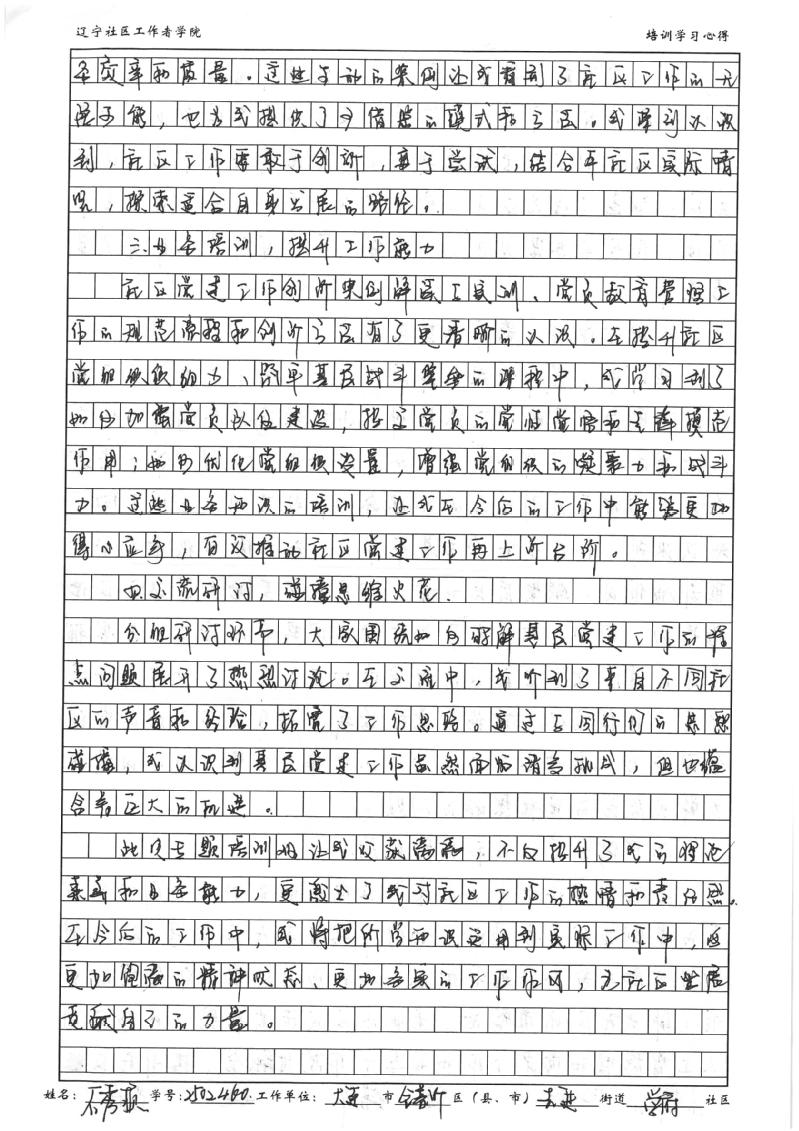 辽宁社区工作者学院 培训学习心得
和质量。这些生动的案例让我看到了社区工作的无
限可能,也为我提供了可借鉴的模式和方法。我深刻认识
到,社区工作要敢于创新,勇于尝试,结合本社区实际情
况,探索适合自身发展的路径。
三.业务培训,提升工作能力
社区党建工作创新案例解读与实训、党员教育管理工
作的规范流程和创新方法有了更清晰的认识。在提升社区
党组织组织力、筑牢基层战斗堡垒的课程中,我学习到了
如何加强党员队伍建设,提高党员的党性觉悟和先锋模范
作用;如何优化党组织设置,增强党组织的凝聚力和战斗
力。这些业务知识的培训,让我在今后的工作中能够更加
得心应手,有效推动社区党建工作再上新台阶。
四.交流研讨,碰撞思维火花.
分组研讨环节,大家围绕如何破解基层党建工作的难
点问题展开了热烈讨论。在交流中,我听到了来自不同社
区的声音和经验,拓宽了工作思路。通过与同行们的思想
碰撞,我认识到基层党建工作虽然面临诸多挑战,但也蕴
含着巨大的机遇。
此次专题培训班让我收获满满,不仅提升了我的理论
素养和业务能力,更激发了我对社区工作的热情和责任感。
在今后的工作中,我将把所学知识运用到实际工作中,以
更加饱满的精神状态、更加务实的工作作风,为社区发展
贡献自己的力量。
姓名: 学号:2502460 工作单位: 大连 市 金普新 区(县、市) 街道 学府 社区